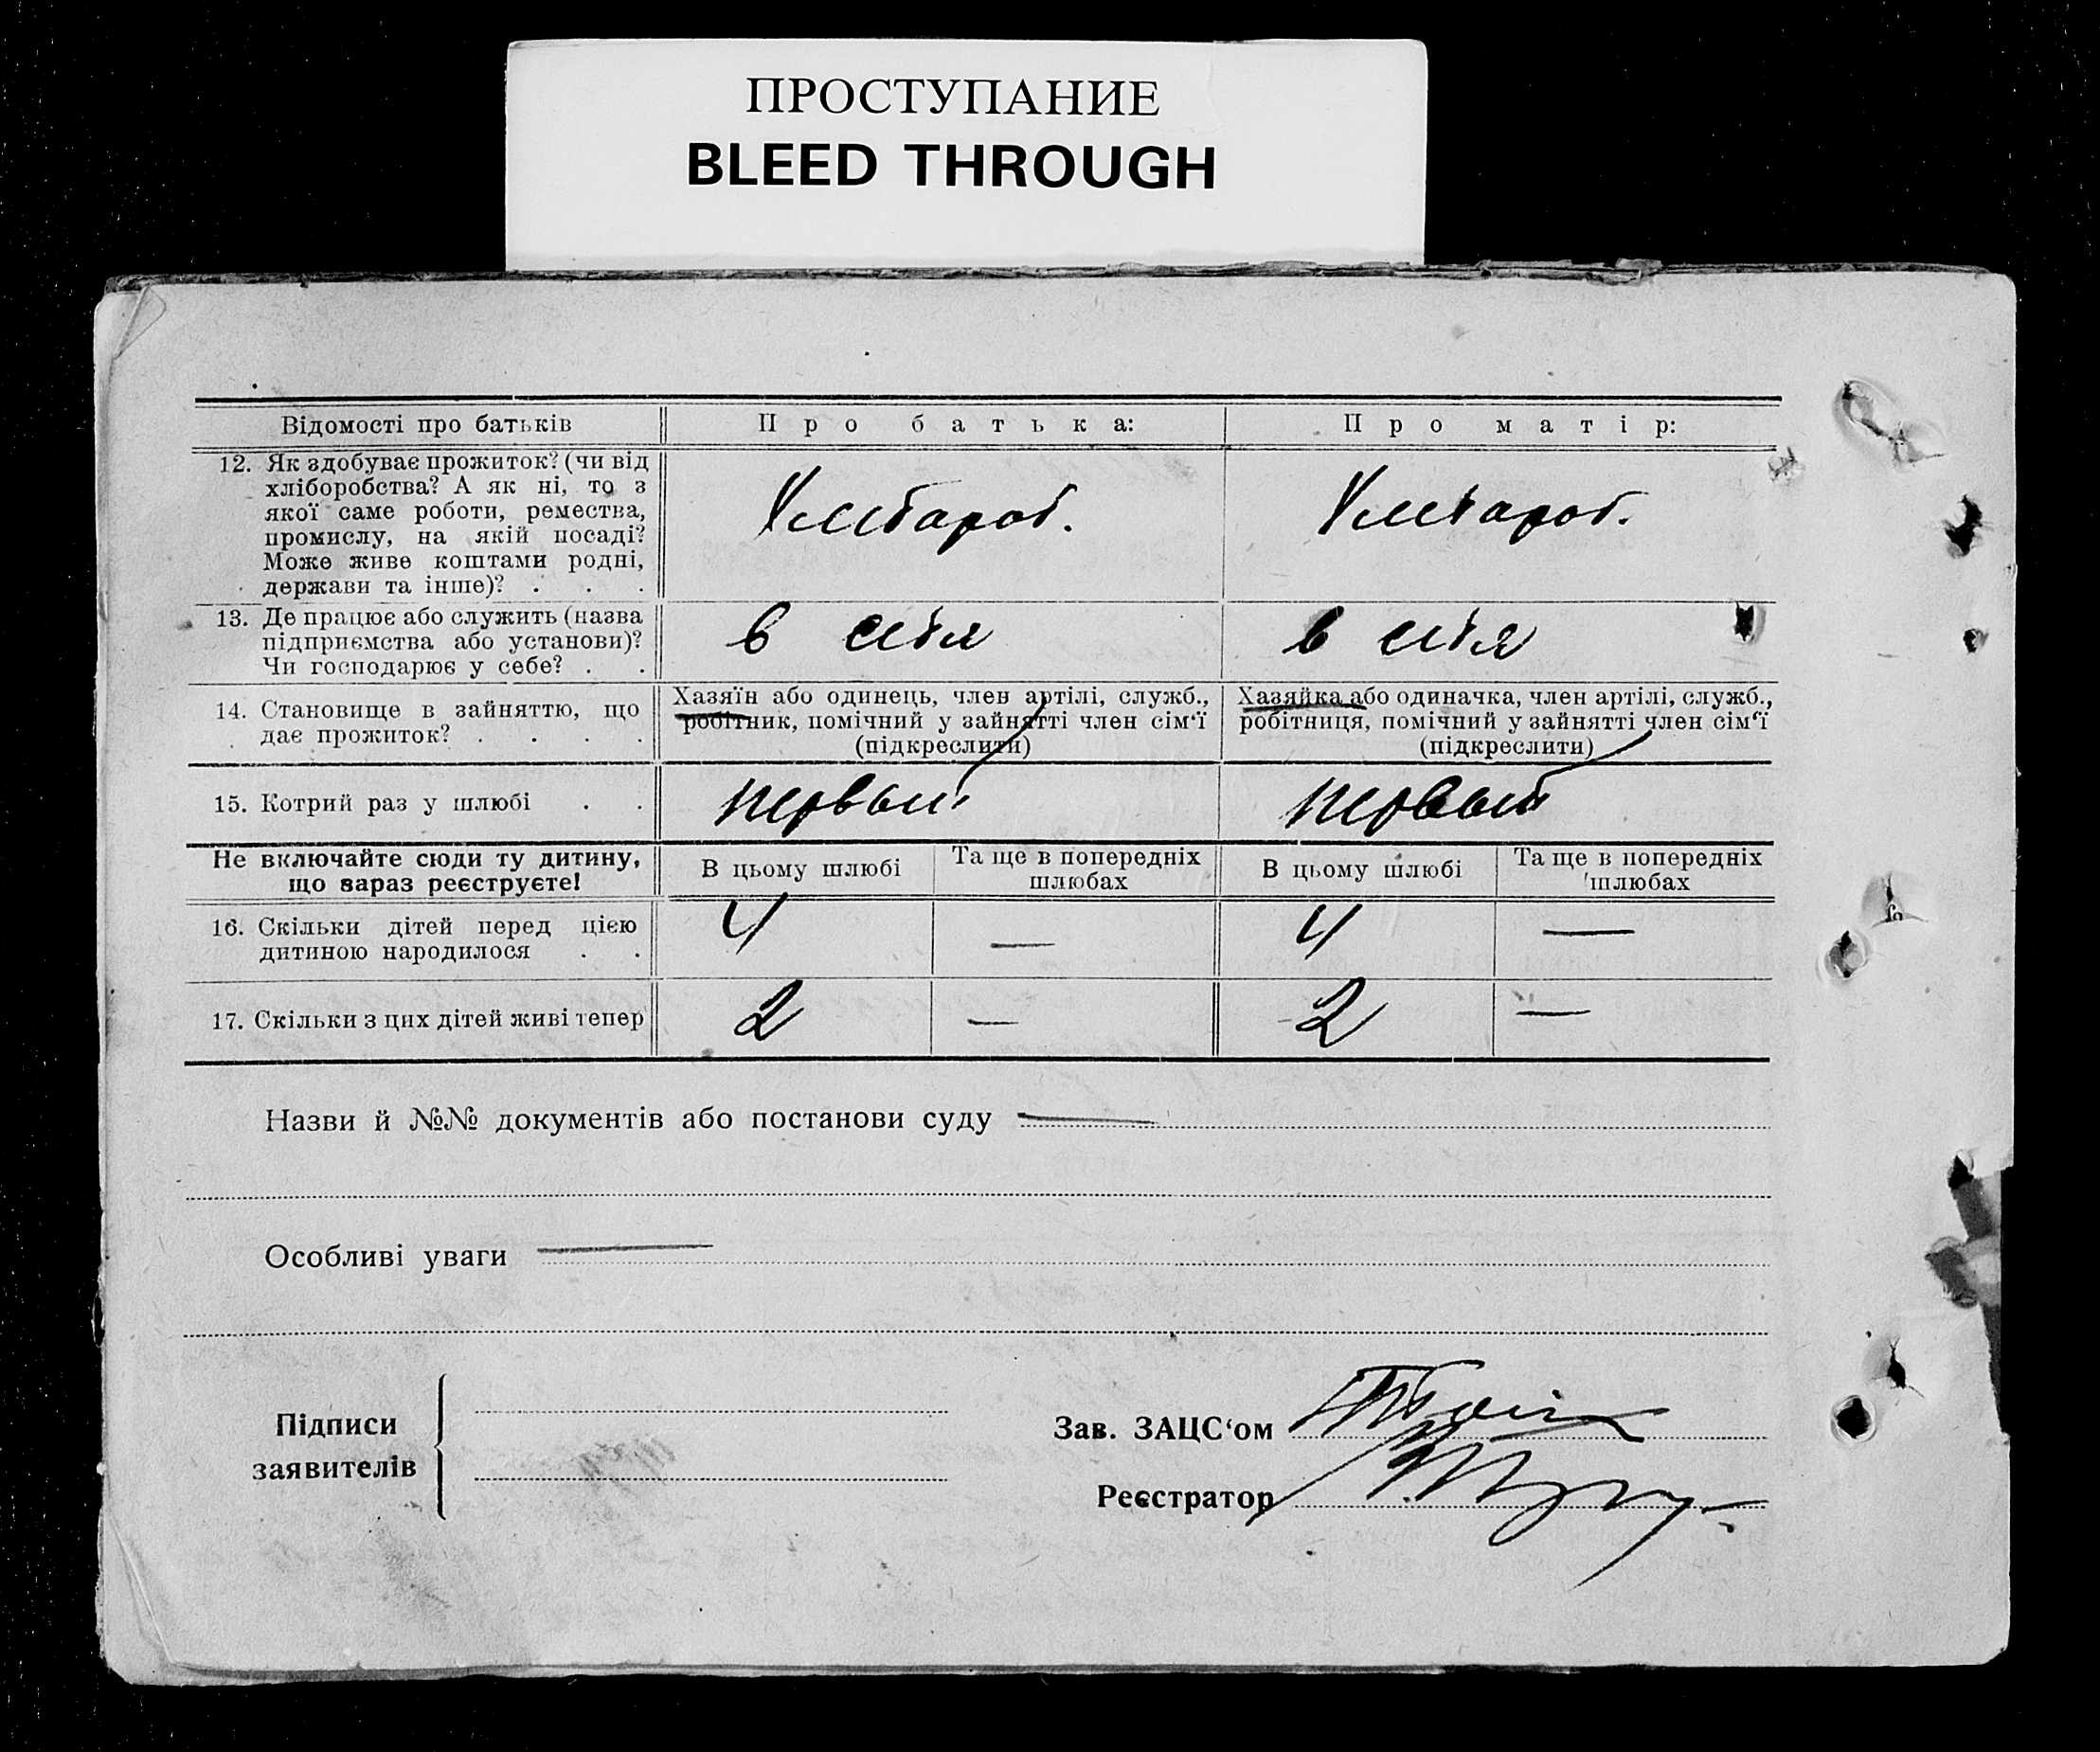 ПРОСТУПАНИЕ
BLEED THROUGH
Відомості про батьків
Про батька:
Про матір:
12. Як здобуває прожиток? (чи від
хліборобства? А як ні, то з
якої саме роботи, ремества,
промислу, на якій посаді?
Може живе коштами родні,
держави та інше)? . . .
Хлібароб.
Хлібароб.
13. Де працює або служить (назва
підприємства або установи)?
Чи господарює у себе? . .
в себя
в себя
14. Становище в зайняттю, що
дає прожиток? . . . .
Хазяїн або одинець, член артілі, служб.,
робітник, помічний у зайнятті член сім‘ї
(підкреслити)
Хазяйка або одиначка, член артілі, служб.,
робітниця, помічний у зайнятті член сім‘ї
(підкреслити)
15. Котрий раз у шлюбі . .
первый
первый
Не включайте сюди ту дитину,
що зараз реєструєте!
В цьому шлюбі
Та ще в попередніх
шлюбах
В цьому шлюбі
Та ще в попередніх
шлюбах
16. Скільки дітей перед цією
дитиною народилося . .
4
—
4
—
17. Скільки з цих дітей живі тепер
2
—
2
—
Назви й №№ документів або постанови суду —
Особливі уваги —
Підписи
заявителів
Зав. ЗАЦС‘ом
Реєстратор